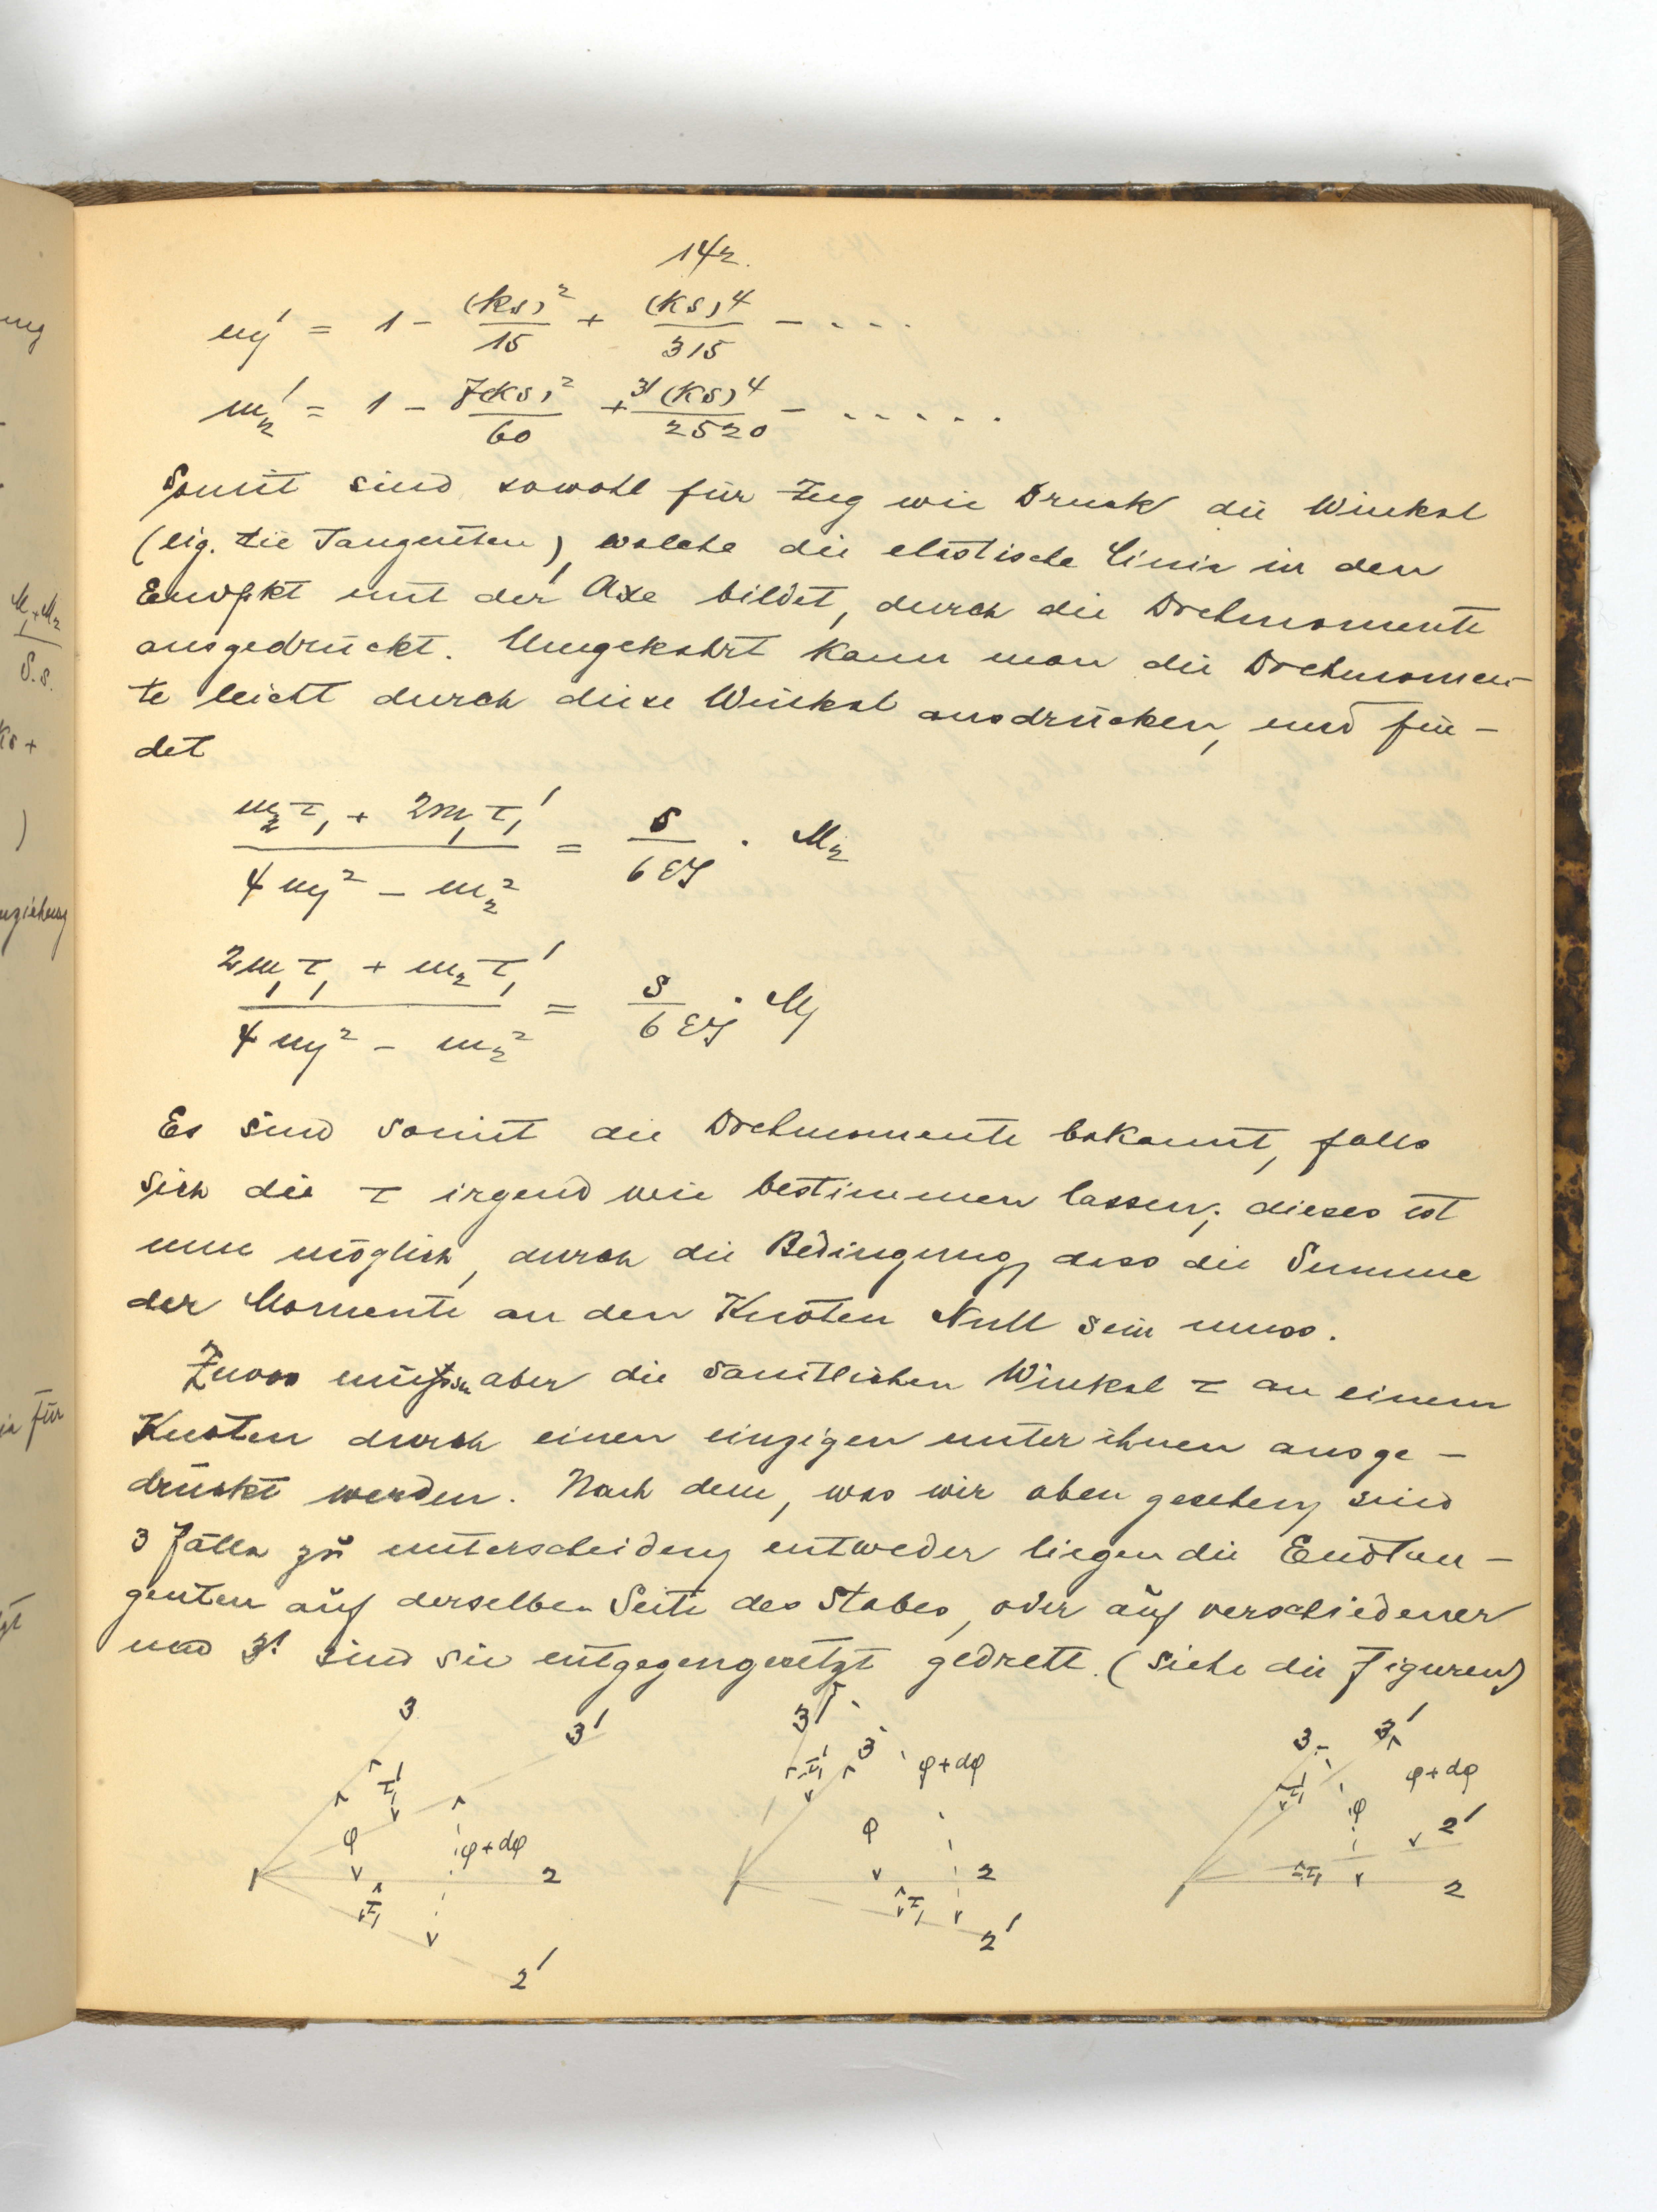 142.
m₁' = 1 - (ks)²/15 + (ks)⁴/315 - ....
m₂' = 1 - 7(ks)²/60 + 31(ks)⁴/2520 - .....
Somit sind sowohl für Zug wie Druck die Winkel
(eig. die Tangenten), welche die elastische Linie in den
Endpkt mit der Axe bildet, durch die Drehmomente
ausgedrückt. Umgekehrt kann man die Drehmomen-
te leicht durch diese Winkel ausdrücken, und fin-
det
(m₂τ₁ + 2m₁τ₁')/(4m₁² - m₂²) = s/(6EJ) · M₂
(2m₁τ₁ + m₂τ₁')/(4m₁² - m₂²) = s/(6EJ) · M₁
Es sind somit die Drehmomente bekannt, falls
sich die τ irgend wie bestimmen lassen; dieses ist
nun möglich, durch die Bedingung, dass die Summe
der Momente an den Knoten Null sein muss.
Zuvor müssen aber die sämtlichen Winkel τ an einem
Knoten durch einen einzigen unter ihnen ausge-
drückt werden. Nach dem, was wir oben gesehen, sind
3 Fälle zu unterscheiden, entweder liegen die Endtan-
genten auf derselben Seite des Stabes, oder auf verschiedener
und 3! sind sie entgegengesetzt gedreht. (Siehe die Figuren)
3 3' τ₁' φ φ+dφ 2 τ₁ 2' 1
3' 3 τ₁' φ+dφ φ 2 τ₁ 2' 1
3 3' τ₁' φ+dφ φ 2' τ₁ 2 1
M₁+M₂
S.s.
ks +
)
für